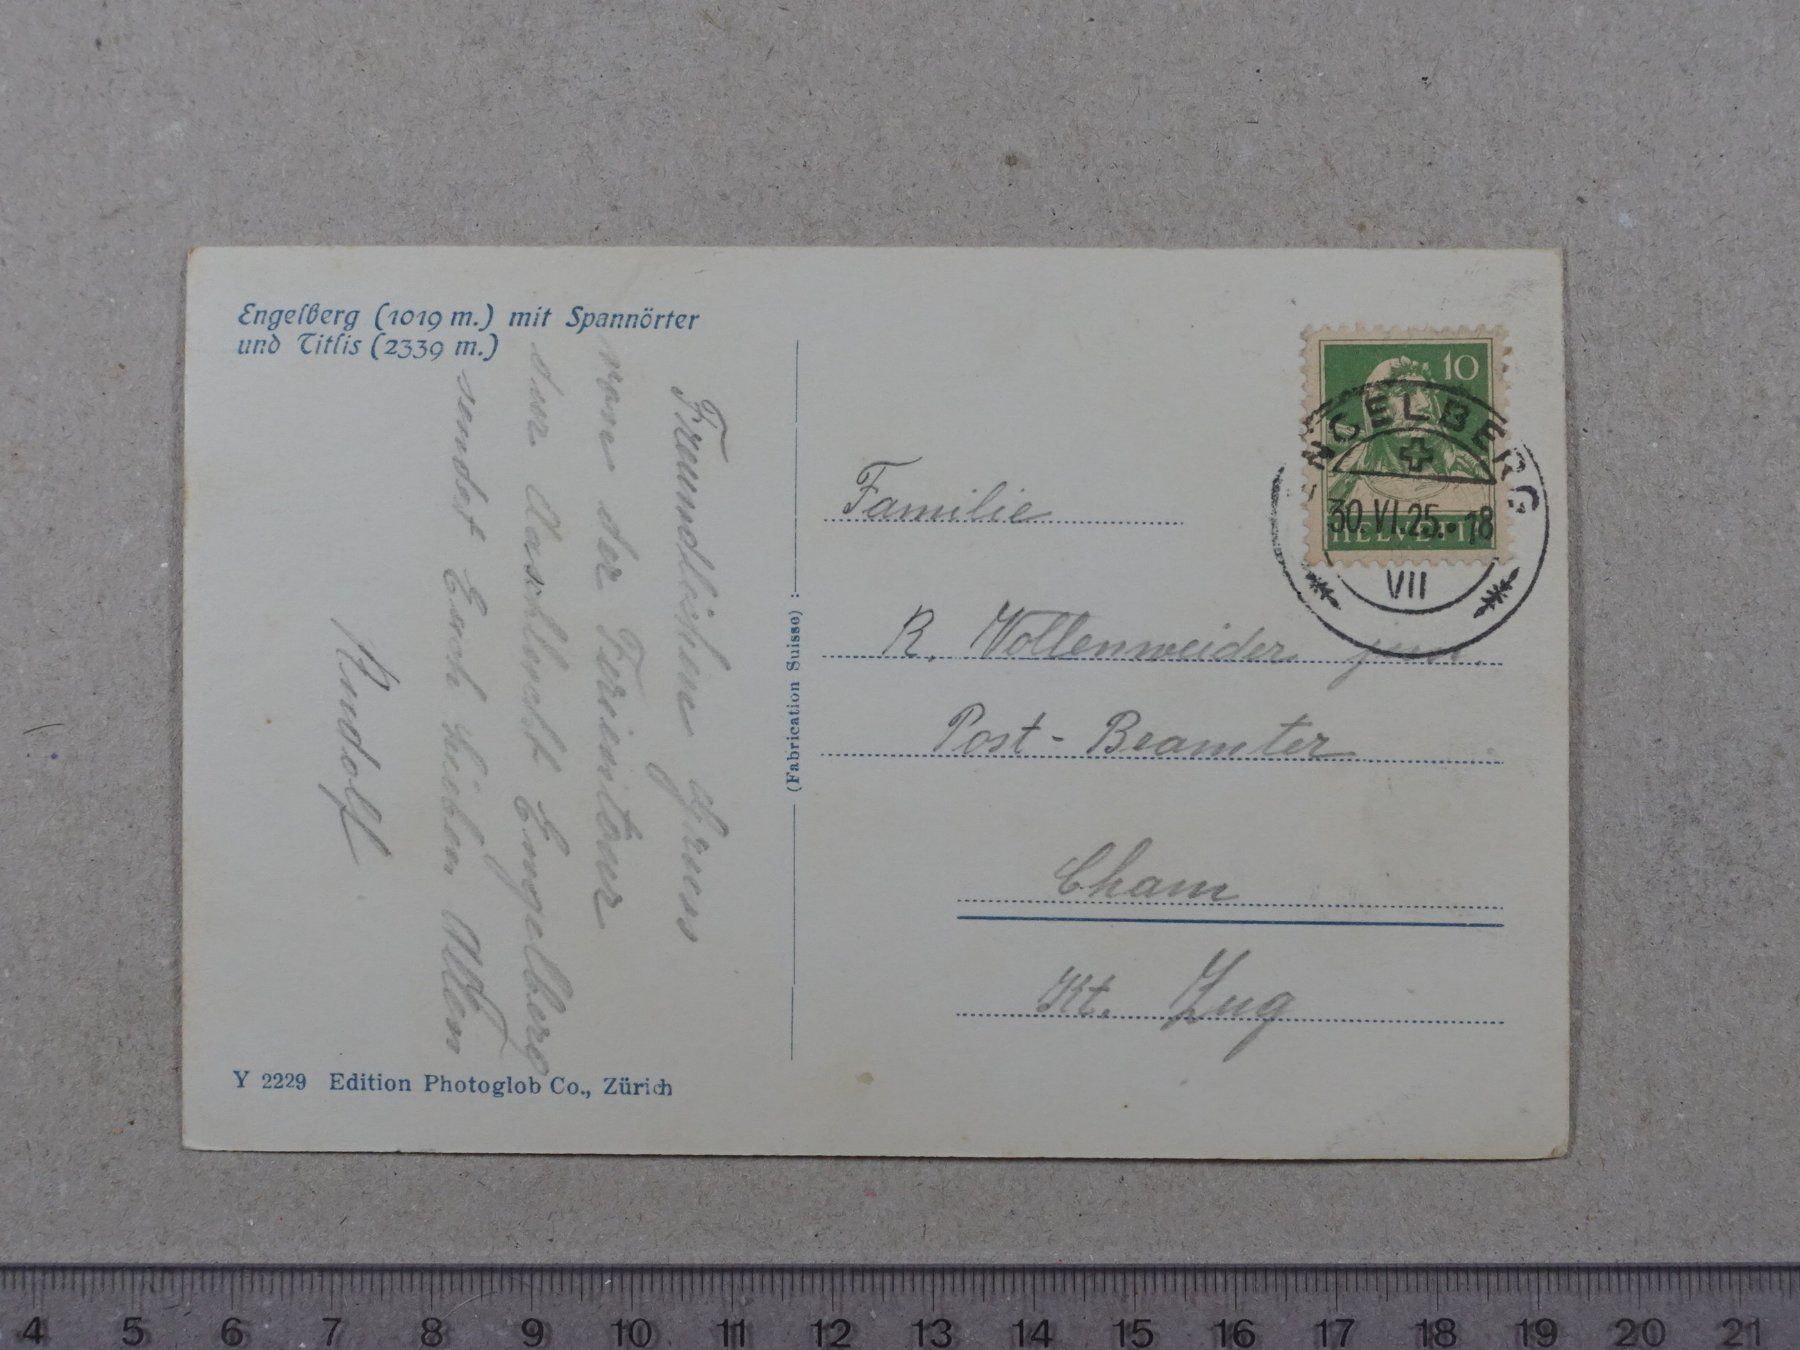 Engelberg (1019 m.) mit Spannörter
und Titlis (2339 m.)
Freundlichen Gruss
von der Ferientour
der Aaschlucht Engelberg
sendet Euch lieben Allen
Rudolf
Y 2229 Edition Photoglob Co., Zürich
(Fabrication Suisse)
10
HELVETIA
ENGELBERG
30.VI.25.•18
VII
Familie
R. Wollenweider jun.
Post-Beamter
Cham
Kt. Zug
4 5 6 7 8 9 10 11 12 13 14 15 16 17 18 19 20 21